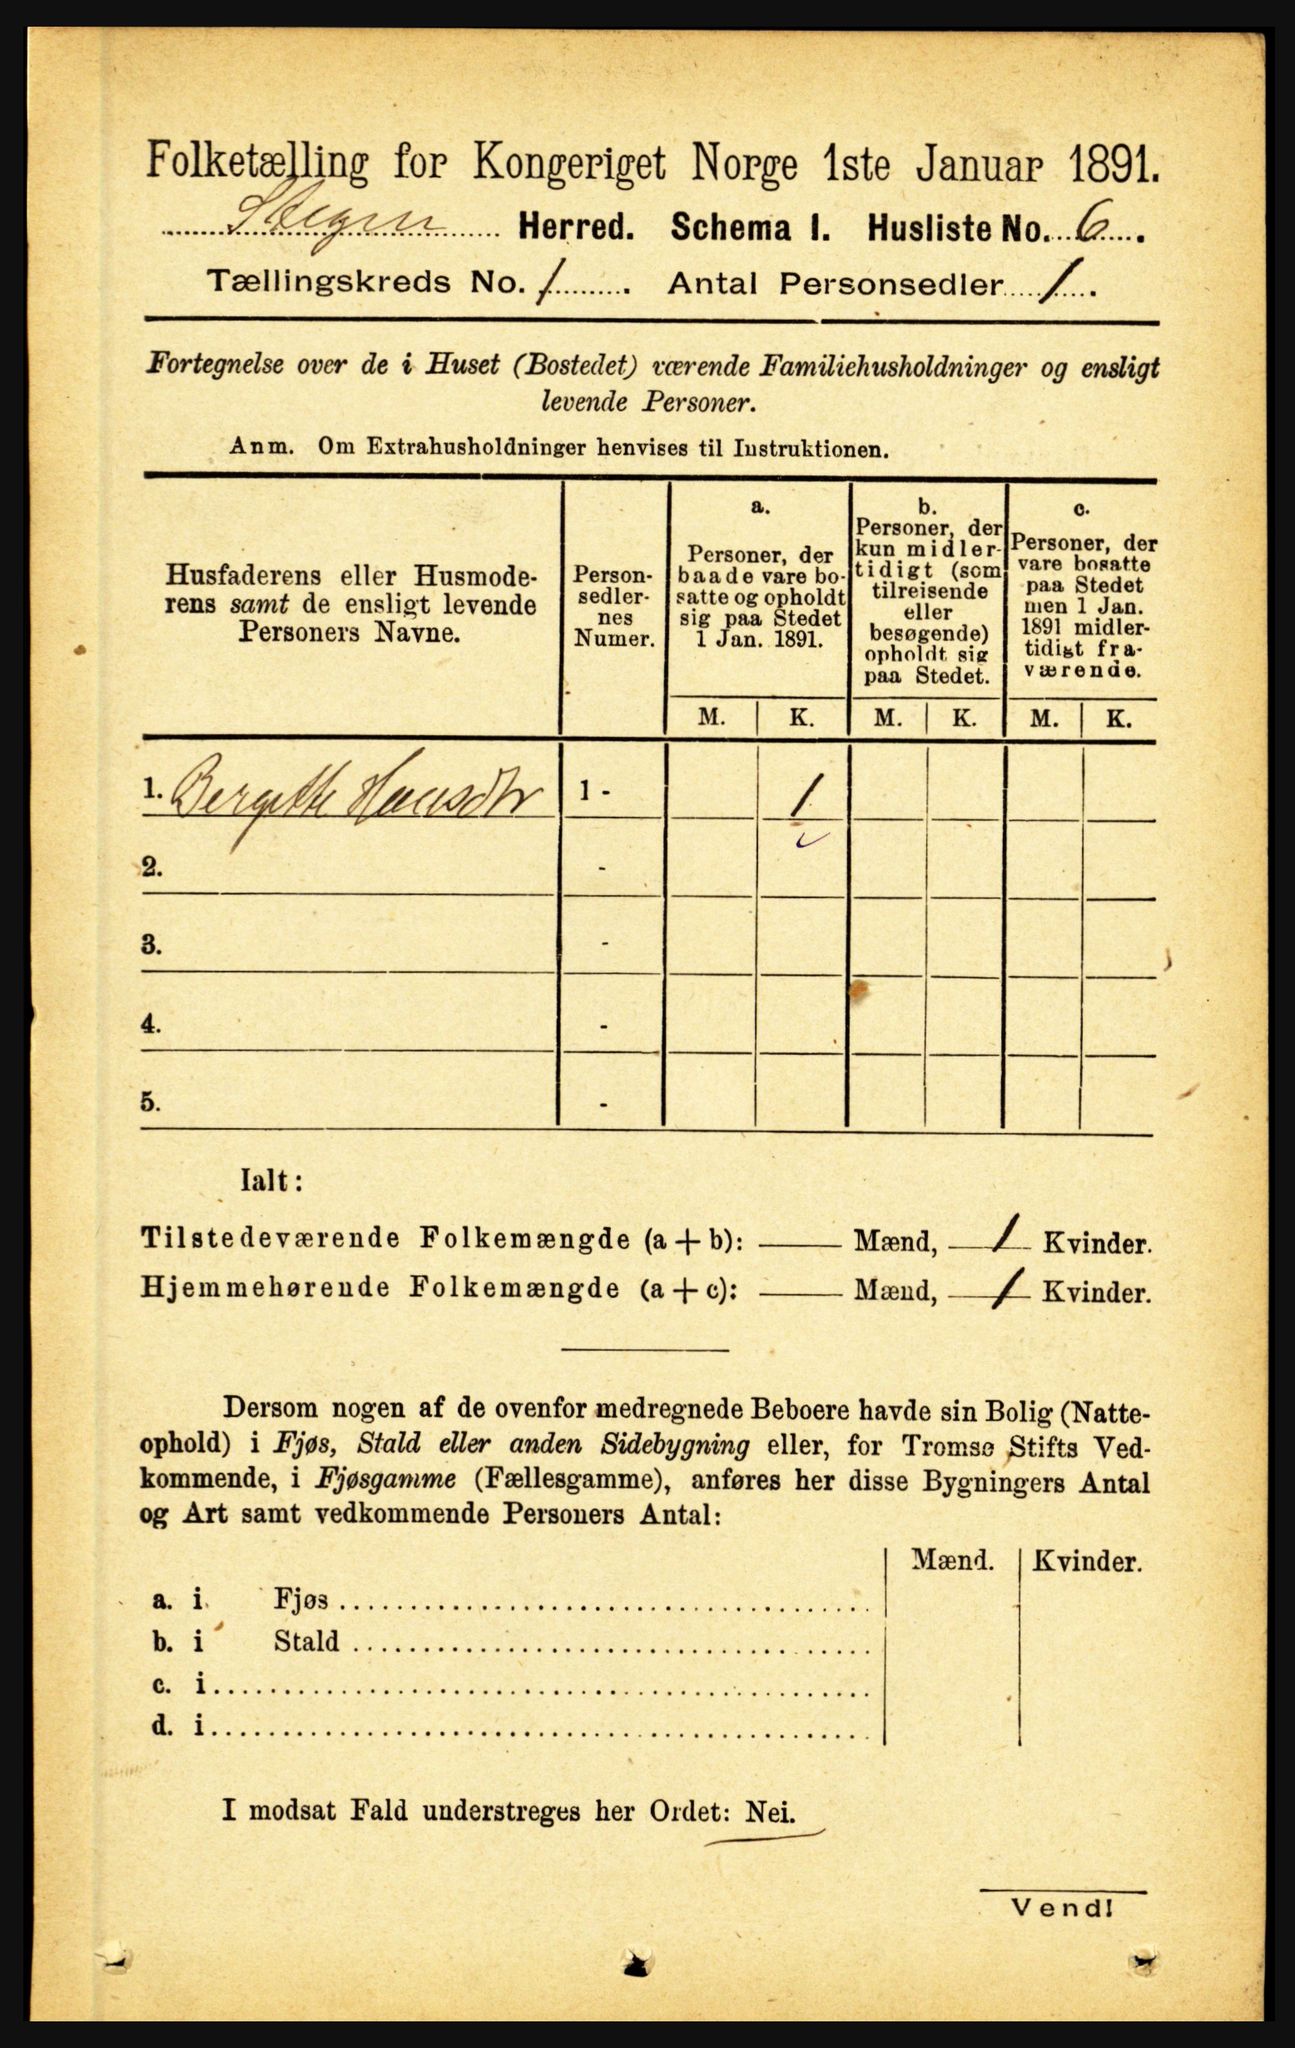 Folketælling for Kongeriget Norge 1ste Januar 1891.
Stegen Herred. Schema I. Husliste No. 6.
Tællingskreds No. 1. Antal Personsedler 1.
Fortegnelse over de i Huset (Bostedet) værende Familiehusholdninger og ensligt
levende Personer.
Anm. Om Extrahusholdninger henvises til Instruktionen.
Husfaderens eller Husmode-
rens samt de ensligt levende
Personers Navne.
Person-
sedler-
nes
Numer.
a.
Personer, der
baade vare bo-
satte og opholdt
sig paa Stedet
1 Jan. 1891.
b.
Personer, der
kun midler-
tidigt (som
tilreisende
eller
besøgende)
opholdt sig
paa Stedet.
c.
Personer, der
vare bosatte
paa Stedet
men 1 Jan.
1891 midler-
tidigt fra-
værende.
M. K. M. K. M. K.
1. Bergitte Hansdtr 1 - 1
2. -
3. -
4. -
5. -
Ialt:
Tilstedeværende Folkemængde (a + b): — Mænd, 1 Kvinder.
Hjemmehørende Folkemængde (a + c): — Mænd, 1 Kvinder.
Dersom nogen af de ovenfor medregnede Beboere havde sin Bolig (Natte-
ophold) i Fjøs, Stald eller anden Sidebygning eller, for Tromsø Stifts Ved-
kommende, i Fjøsgamme (Fællesgamme), anføres her disse Bygningers Antal
og Art samt vedkommende Personers Antal:
Mænd. Kvinder.
a. i Fjøs
b. i Stald
c. i
d. i
I modsat Fald understreges her Ordet: Nei.
Vend!